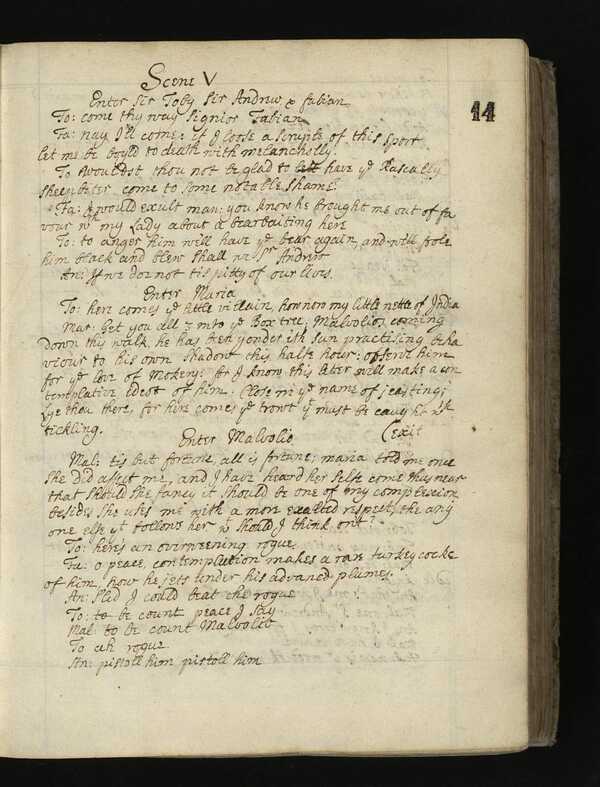 14
Scene V
Enter Sir Toby Sir Andrew & fabian
To: come thy way Signior Fabian
Fa: nay I'll come: if I loose a scruple of this sport
let me be boyld to death with melancholly.
To wouldst thou not be glad to have ye Rascally
sheepbiter come to some notable shame?
Fa: I would exult man: you know he brought me out of fa
vour wth my Lady about a bearbaiting here
To: to anger him will have ye bear again, and will foole
him black and blew shall we Sr Andrew
An: If we doe not tis pitty of our lives.
Enter Maria
To: here comes ye little villain, how now my little nettle of India
Mar: Get you all 3 into ye Box tree; Malvolios coming
down this walk, he has been yonder ith sun practising beha
viour to his own shadow this halfe hour: observe him
for ye love of Mokery: for I know this leter will make a con
templative ideot of him. Close in ye name of jeasting;
Lye thou there, for here comes ye trowt yt must be caught wth
tickling. (exit
Enter Malvolio
Mal: tis but fortune, all is fortune; maria told me once
she did affect me, and I have heard her selfe come thus near
that should she fancy it should be one of my complexion
besides she uses me with a more exalted respect, the any
one else yt follows her w should I think ont?
To: here's an overweening rogue
Fa: o peace, contemplation makes a rare turkeycocke
of him, how he jets under his advancd plumes.
An: slid I could beat the rogue
To: to be count peace I say
Mal: to be count Malvolio
To ah rogue
An: pistoll him pistoll him